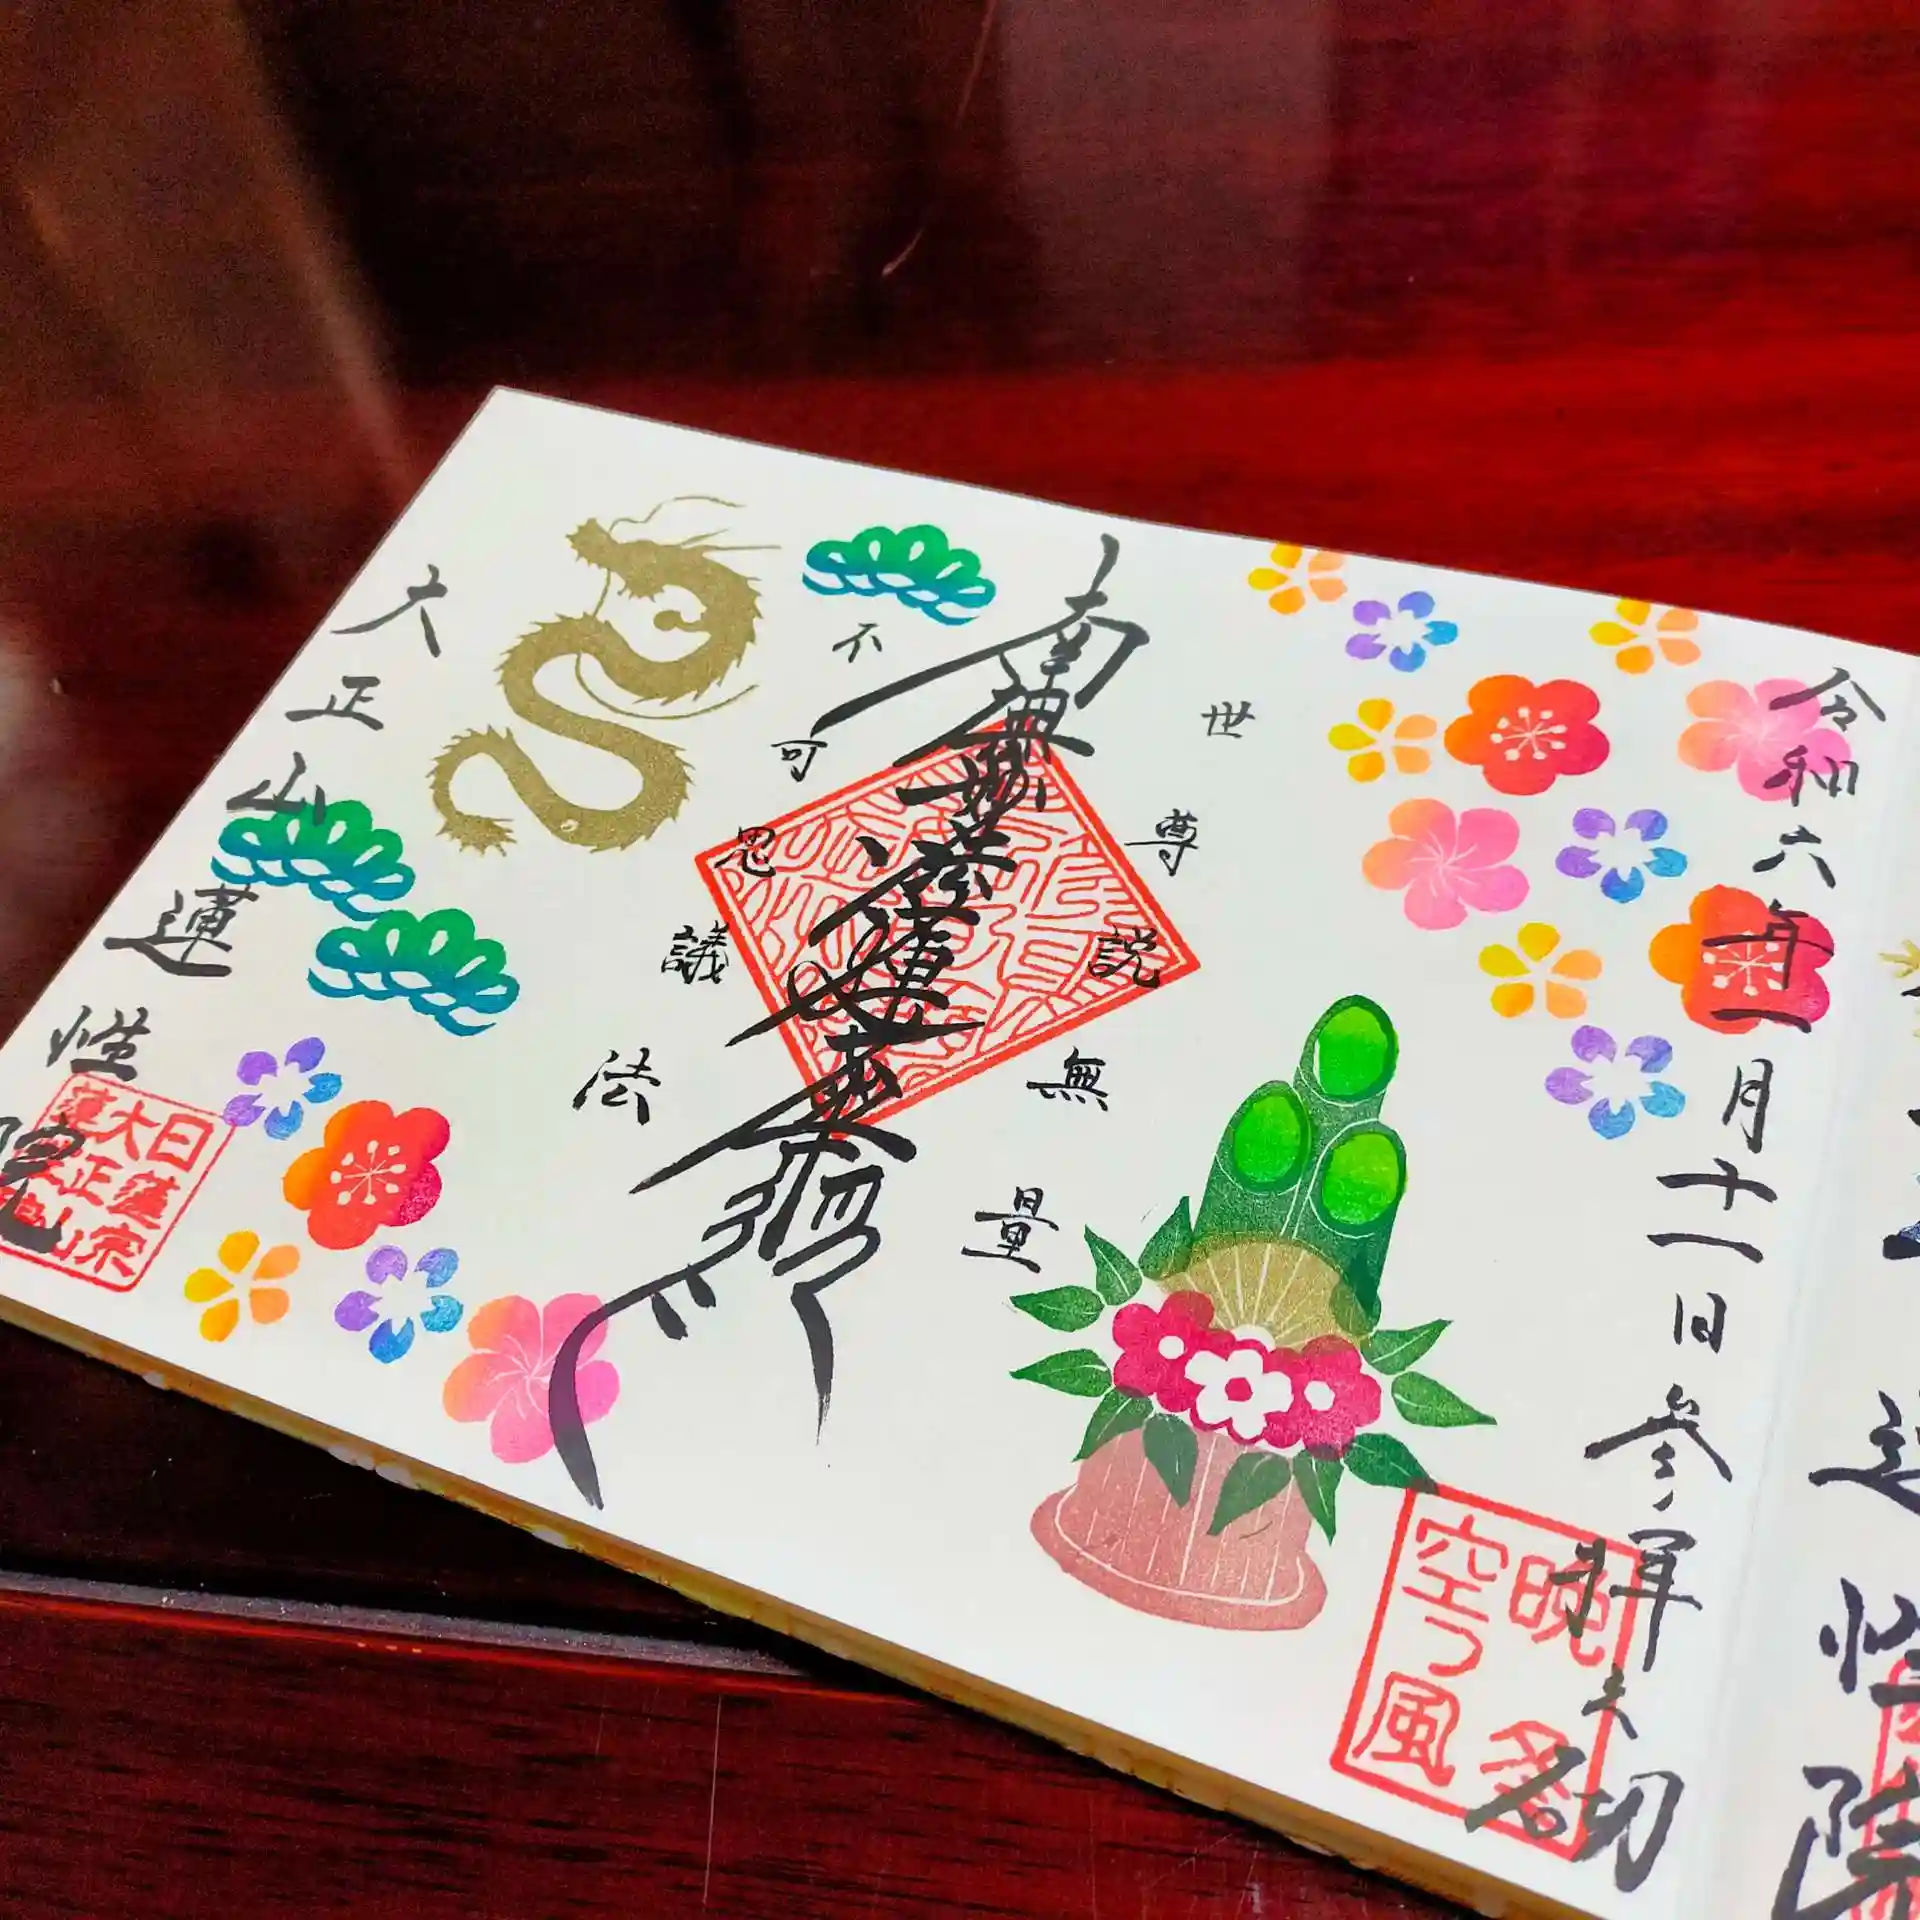 令和六年一月十一日参拝之切
世尊説無量
南無妙法蓮華経
不可思議法
大正山蓮惺院
日蓮宗
大正山
晩
空つ風
蓮惺院